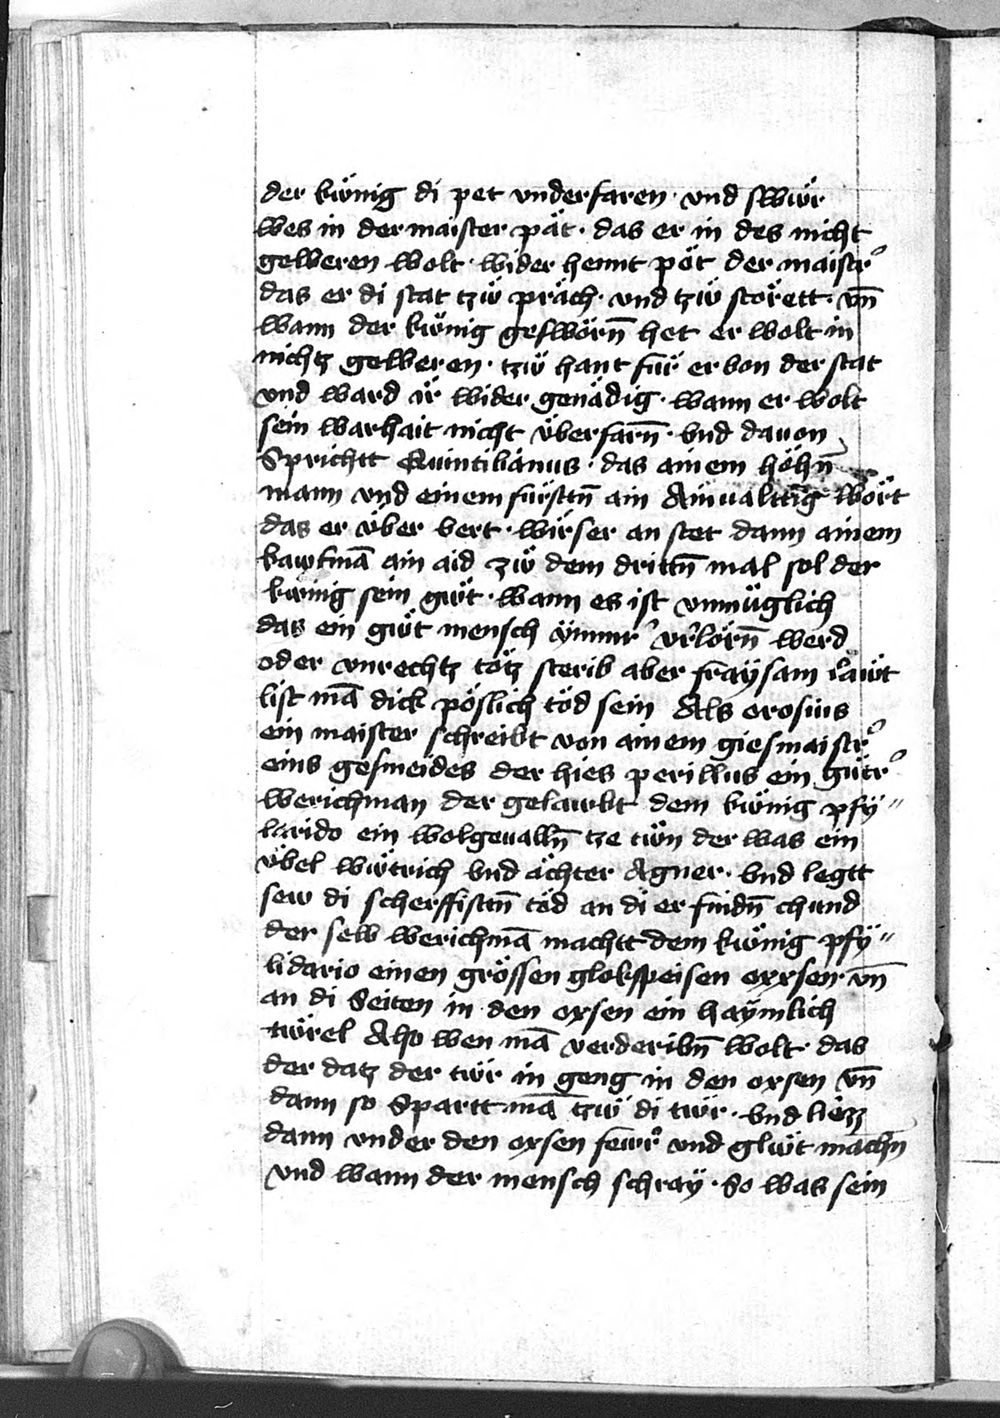 der kwͤnig di pet vnderfaren · vnd swuͤr
wes in der maister paͤt · das er in des nicht
geweren wolt · wider hennt poͤt der maistr̕
das er di stat tzwͤ praͤch · vnd tzwͤ stoͤrett · vn̄
wann der kwͤnig geswoͤrn̄ het er wolt in
nichtz geweren · tzwͤ hant fuͤr er von der stat
vnd ward ir̈ wider genaͤdig · wann er wolt
sein warhait nicht v̈berfarn̄ · vnd dauon
Sprichtt Quintilianus · das ainem hoͤhn̄
mann vnd einem fuͤrsttn̄ ain Ainualttiḡ woͤrt
das er v̈ber vert · wirser an stet dann ainem
kawfmā ain aid zwͤ dem drittn̄ mal sol der
kwnig sein gwͤt · wann es ist vnmuͤglich
das ein gwͤt mensch ÿmmr̕ vr̕loͤrn̄ werd
oder vnrechtz toͤtz sterib aber fraÿsam lawͤt
list mā dick poͤslich toͤd sein Als orosius
ein maister schreibt von ainem giesmaistr̕
eins gesmeides der hies perillus ein guͤtr̕
werichman der gelawbt dem kwͤnig pfÿ〃
larido ein wolgeualln̄ tze twͤn der was ein
v̈bel wwͤtrich vnd aͤchter Agner · vnd legtt
sew di scherffisttn̄ toͤd an di er findn̄ chund
der selb werichmā machtt dem kwͤnig pfÿ〃
lidario einen groͤssen glokspeisen oxxsen · vn̄
an di Seiten in den oxsen ein haÿmlich
twͤrel Also wen mā verderibn̄ wolt · das
der datz der twͤr in geng in den oxsen vn̄
dann so Spartt mā tzwͤ di twͤr · vnd liezz
dann vnder den oxsen fewr̕ vnd glwͤt machn̄
vnd wann der mensch schraÿ · So was sein